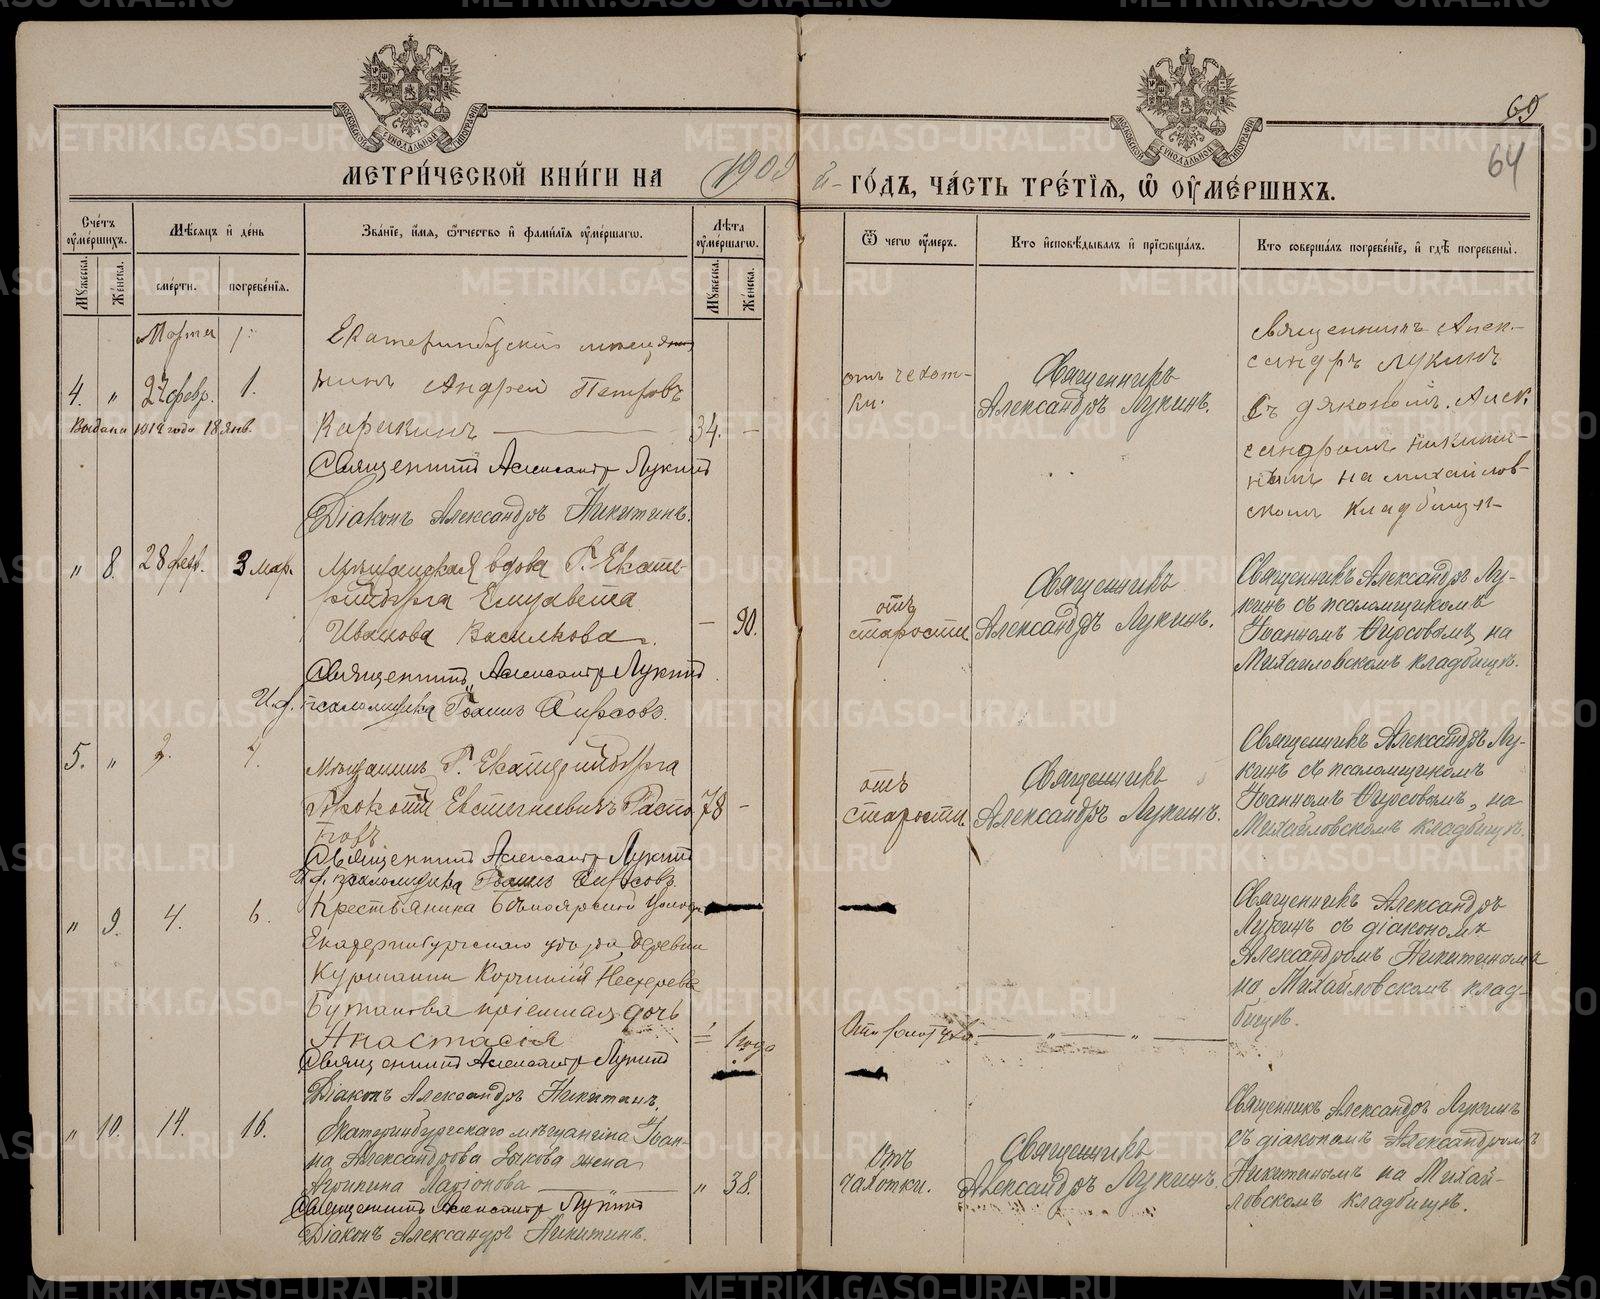 69
64
МЕТРИ́ЧЕСКОЙ КНИ́ГИ НА 1909 й- ГО́ДЪ, ЧА́СТЬ ТРЕ́ТІѦ, Ѡ ОУМЕ́РШИХЪ.
Сче́тъ оумершихъ.
Мѣсяцъ и де́нь
Зва́нїе, и́мя, о́тчество и фами́лїя оуме́ршагω.
Лѣ́та оуме́ршагω.
Ѿ чегω оу́меръ.
Кто исповѣ́дывалъ и прїωбща́лъ.
Кто соверша́лъ погребе́нїе, и гдѣ погребены̀.
Му́жеска.
Же́нска.
сме́рти.
погребе́нїя.
Му́жеска.
Же́нска.
Марта 1.
4. " 27 февр. 1.
Выдана 1912 года 18 янв.
Екатеринбургскій мѣщанинъ
Андрей Петровъ
Карякинъ
34. -
Священникъ Александръ Лукинъ
Діаконъ Александръ Никитинъ.
отъ чехотки.
Священникъ
Александръ Лукинъ.
Священникъ Александръ Лукинъ
съ дяконом. Александромъ Никитинымъ
на михайловскомъ кладбищѣ
" 8. 28 февр. 3 мар.
Мѣщанская вдова г. Екатеринбурга Елизавета
Иванова Василкова.
- 90.
Священникъ Александръ Лукинъ
И.д. псаломщика Іоаннъ Фирсовъ.
отъ
старости
Священникъ
Александръ Лукинъ.
Священникъ Александръ Лукинъ
съ псаломщикомъ
Іоанномъ Фирсовымъ, на
Михайловскомъ кладбищѣ.
5. " 2. 4.
Мѣщанинъ г. Екатеринбурга
Прокопій Евстигнеевичъ
78 -
Священникъ Александръ Лукинъ
И.д. псаломщика Іоаннъ Фирсовъ.
отъ
старости
Священникъ
Александръ Лукинъ.
Священникъ Александръ Лукинъ
съ псаломщикомъ
Іоанномъ Фирсовымъ, на
Михайловскомъ кладбищѣ.
" 9. 4. 6.
Крестьянина Бѣлоярской
Екатеринбургскаго уѣзда, деревни
приемная дочь
Анастасія
1 годъ
Священникъ Александръ Лукинъ
Діаконъ Александръ Никитинъ.
Священникъ Александръ
Лукинъ съ діакономъ
Александромъ Никитинымъ
на Михайловскомъ кладбищѣ.
" 10. 14. 16.
Екатеринбургскаго мѣщанина Іоанна Александрова Зыкова жена
Агрипина Ларіонова
" 38.
Священникъ Александръ Лукинъ
Діаконъ Александръ Никитинъ.
Отъ
чахотки.
Священникъ
Александръ Лукинъ.
Священникъ Александръ Лукинъ
съ діакономъ Александромъ
Никитинымъ на Михайловскомъ кладбищѣ.
METRIKI.GASO-URAL.RU